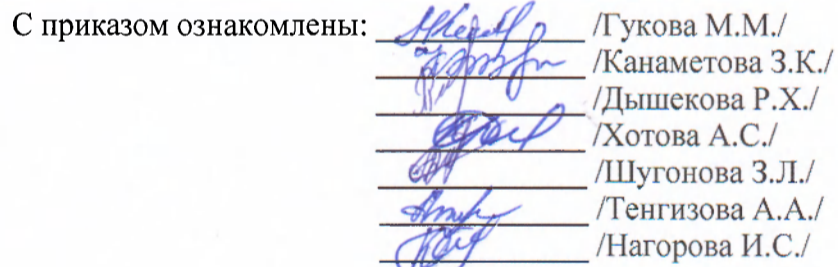 С приказом ознакомлены: /Гукова М.М./
/Канаметова З.К./
/Дышекова Р.Х./
/Хотова А.С./
/Шугонова З.Л./
/Тенгизова А.А./
/Нагорова И.С./